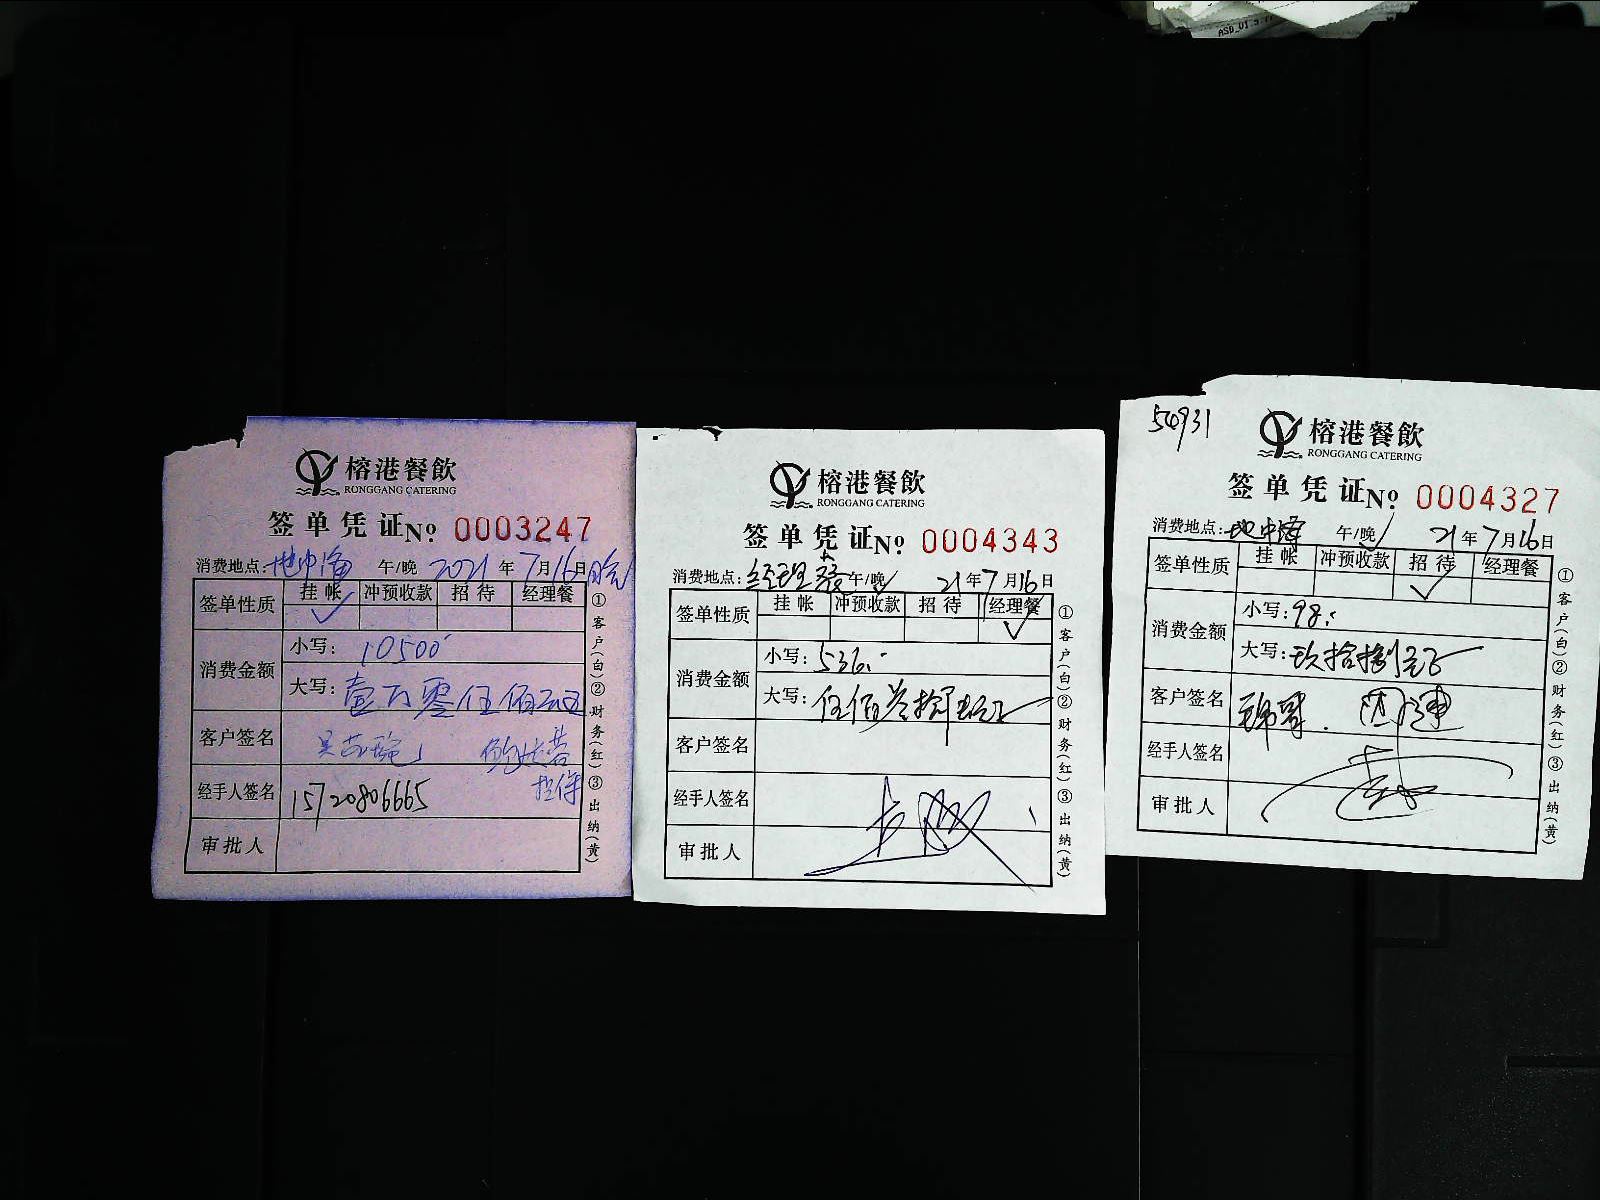 ASD_V1.5
榕港餐飲
RONGGANG CATERING
签单凭证№ 0003247
消费地点:地中海 午/晚 2021年7月16日晚
签单性质 挂帐 冲预收款 招待 经理餐
✓
消费金额 小写: 10500
大写: 壹万零伍佰元正
客户签名
担保
经手人签名 15720806665
审批人
①客户(白)②财务(红)③出纳(黄)
榕港餐飲
RONGGANG CATERING
签单凭证№ 0004343
消费地点:经理餐 午/晚 21年7月16日
签单性质 挂帐 冲预收款 招待 经理餐
✓
消费金额 小写: 536.-
大写: 伍佰叁拾
客户签名
经手人签名
审批人
①客户(白)②财务(红)③出纳(黄)
50931
榕港餐飲
RONGGANG CATERING
签单凭证№ 0004327
消费地点:地中海 午/晚 21年7月16日
签单性质 挂帐 冲预收款 招待 经理餐
✓
消费金额 小写: 98.-
大写: 玖拾捌元正
客户签名
经手人签名
审批人
①客户(白)②财务(红)③出纳(黄)